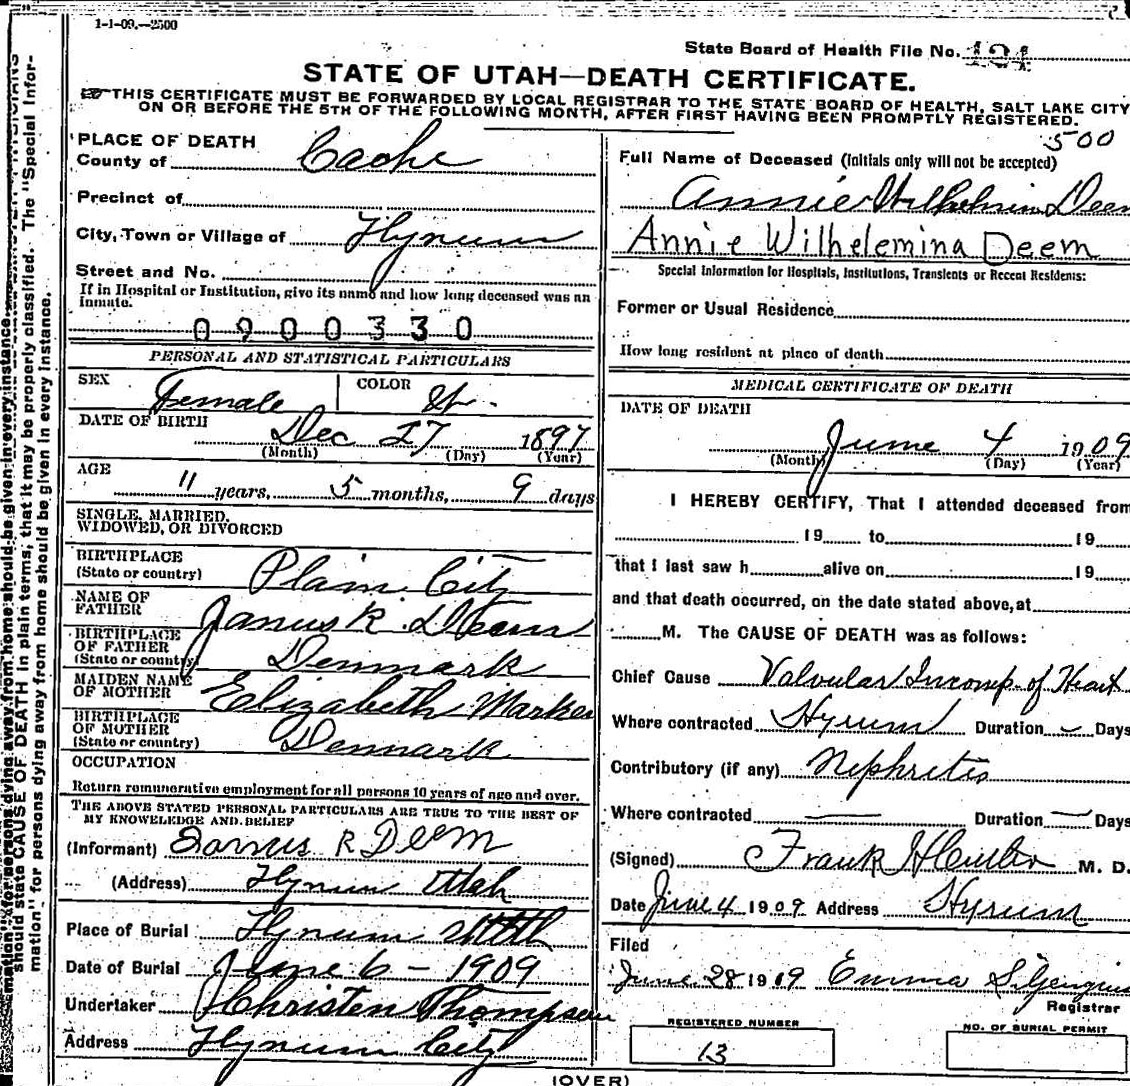 1-1-09.—2500
State Board of Health File No. 121
STATE OF UTAH—DEATH CERTIFICATE.
THIS CERTIFICATE MUST BE FORWARDED BY LOCAL REGISTRAR TO THE STATE BOARD OF HEALTH, SALT LAKE CITY
ON OR BEFORE THE 5TH OF THE FOLLOWING MONTH, AFTER FIRST HAVING BEEN PROMPTLY REGISTERED.
PLACE OF DEATH
County of Cache
Precinct of
City, Town or Village of Hyrum
Street and No.
If in Hospital or Institution, give its name and how long deceased was an
inmate.
0900330
PERSONAL AND STATISTICAL PARTICULARS
SEX Female COLOR W.
DATE OF BIRTH Dec 27 1897
(Month) (Day) (Year)
AGE
11 years, 5 months, 9 days
SINGLE, MARRIED,
WIDOWED, OR DIVORCED
BIRTHPLACE
(State or country) Plain City
NAME OF
FATHER Janus R. Deem
BIRTHPLACE
OF FATHER
(State or country) Denmark
MAIDEN NAME
OF MOTHER Elizabeth
BIRTHPLACE
OF MOTHER
(State or country) Denmark
OCCUPATION
Return remunerative employment for all persons 10 years of age and over.
THE ABOVE STATED PERSONAL PARTICULARS ARE TRUE TO THE BEST OF
MY KNOWLEDGE AND BELIEF
(Informant) Janus R Deem
(Address) Hyrum Utah
Place of Burial Hyrum Utah
Date of Burial June 6 - 1909
Undertaker Christen Thompsen
Address Hyrum City
500
Full Name of Deceased (Initials only will not be accepted)
Annie Wilhelmin Deem
Annie Wilhelemina Deem
Special Information for Hospitals, Institutions, Transients or Recent Residents:
Former or Usual Residence
How long resident at place of death
MEDICAL CERTIFICATE OF DEATH
DATE OF DEATH
June 4 1909
(Month) (Day) (Year)
I HEREBY CERTIFY, That I attended deceased from
19 to 19
that I last saw h alive on 19
and that death occurred, on the date stated above, at
M. The CAUSE OF DEATH was as follows:
Chief Cause Valvular Incomp. of Heart
Where contracted Hyrum Duration Days
Contributory (if any) Nephritis
Where contracted — Duration — Days
(Signed) Frank H M. D.
Date June 4 1909 Address Hyrum
Filed
June 28 1909 Emma
Registrar
REGISTERED NUMBER
13
NO. OF BURIAL PERMIT
(OVER)
should state CAUSE OF DEATH in plain terms, that it may be properly classified. The "Special Infor-
mation" for persons dying away from home should be given in every instance.